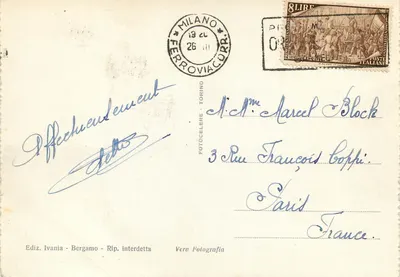 MILANO
19 20
26 III
* FERROVIA CORR. *
8 LIRE
ITALIANE
Affectueusement
FOTOCELERE TORINO
M. Mme Marcel Block
3 Rue François Coppi.
Paris
France.
Ediz. Ivania - Bergamo - Rip. interdetta
Vera Fotografia